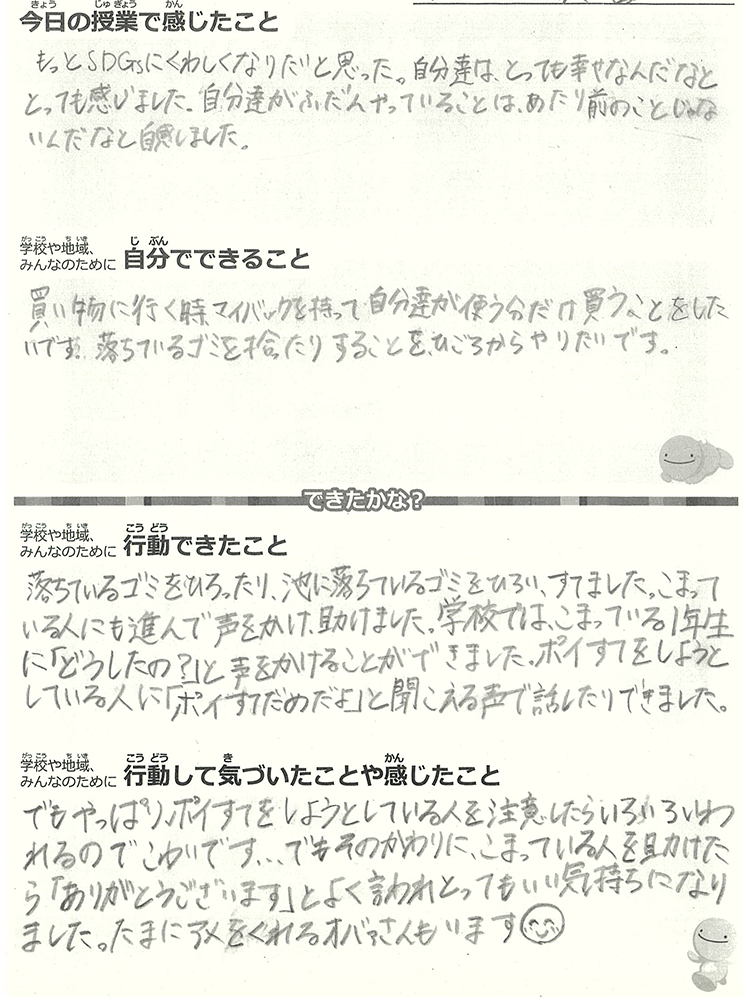 今日の授業で感じたこと
もっとSDGsにくわしくなりたいと思った。自分達は、とっても幸せなんだなと
とっても感じました。自分達がふだんやっていることは、あたり前のことじゃな
いんだなと自感しました。
学校や地域、みんなのために 自分でできること
買い物に行く時マイバックを持って自分達が使う分だけ買うことをした
いです。落ちているゴミを拾ったりすることを、ひごろからやりたいです。
できたかな?
学校や地域、みんなのために 行動できたこと
落ちているゴミをひろったり、池に落ちているゴミをひろい、すてました。こまって
いる人にも進んで声をかけ、助けました。学校では、こまっている1年生
に「どうしたの?」と声をかけることができました。ポイすてをしようと
している人に「ポイすてだめだよ」と聞こえる声で話したりできました。
学校や地域、みんなのために 行動して気づいたことや感じたこと
でもやっぱり、ポイすてをしようとしている人を注意したらいろいろいわ
れるのでこわいです、、、でもそのかわりに、こまっている人を助けた
ら「ありがとうございます」とよく言われとってもいい気持ちになり
ました。たまにアメをくれるオバァさんもいます